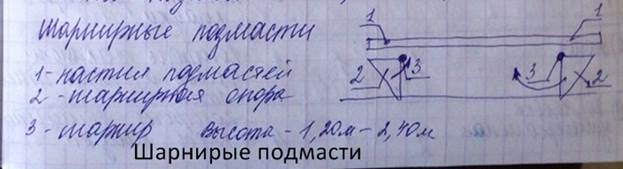 Шарнирные подмасти
1 1
1-настил подмастей
2 3 3 2
2-шарнирная опора
3-шарнир высота - 1,20м - 2,40м
Шарнирые подмасти